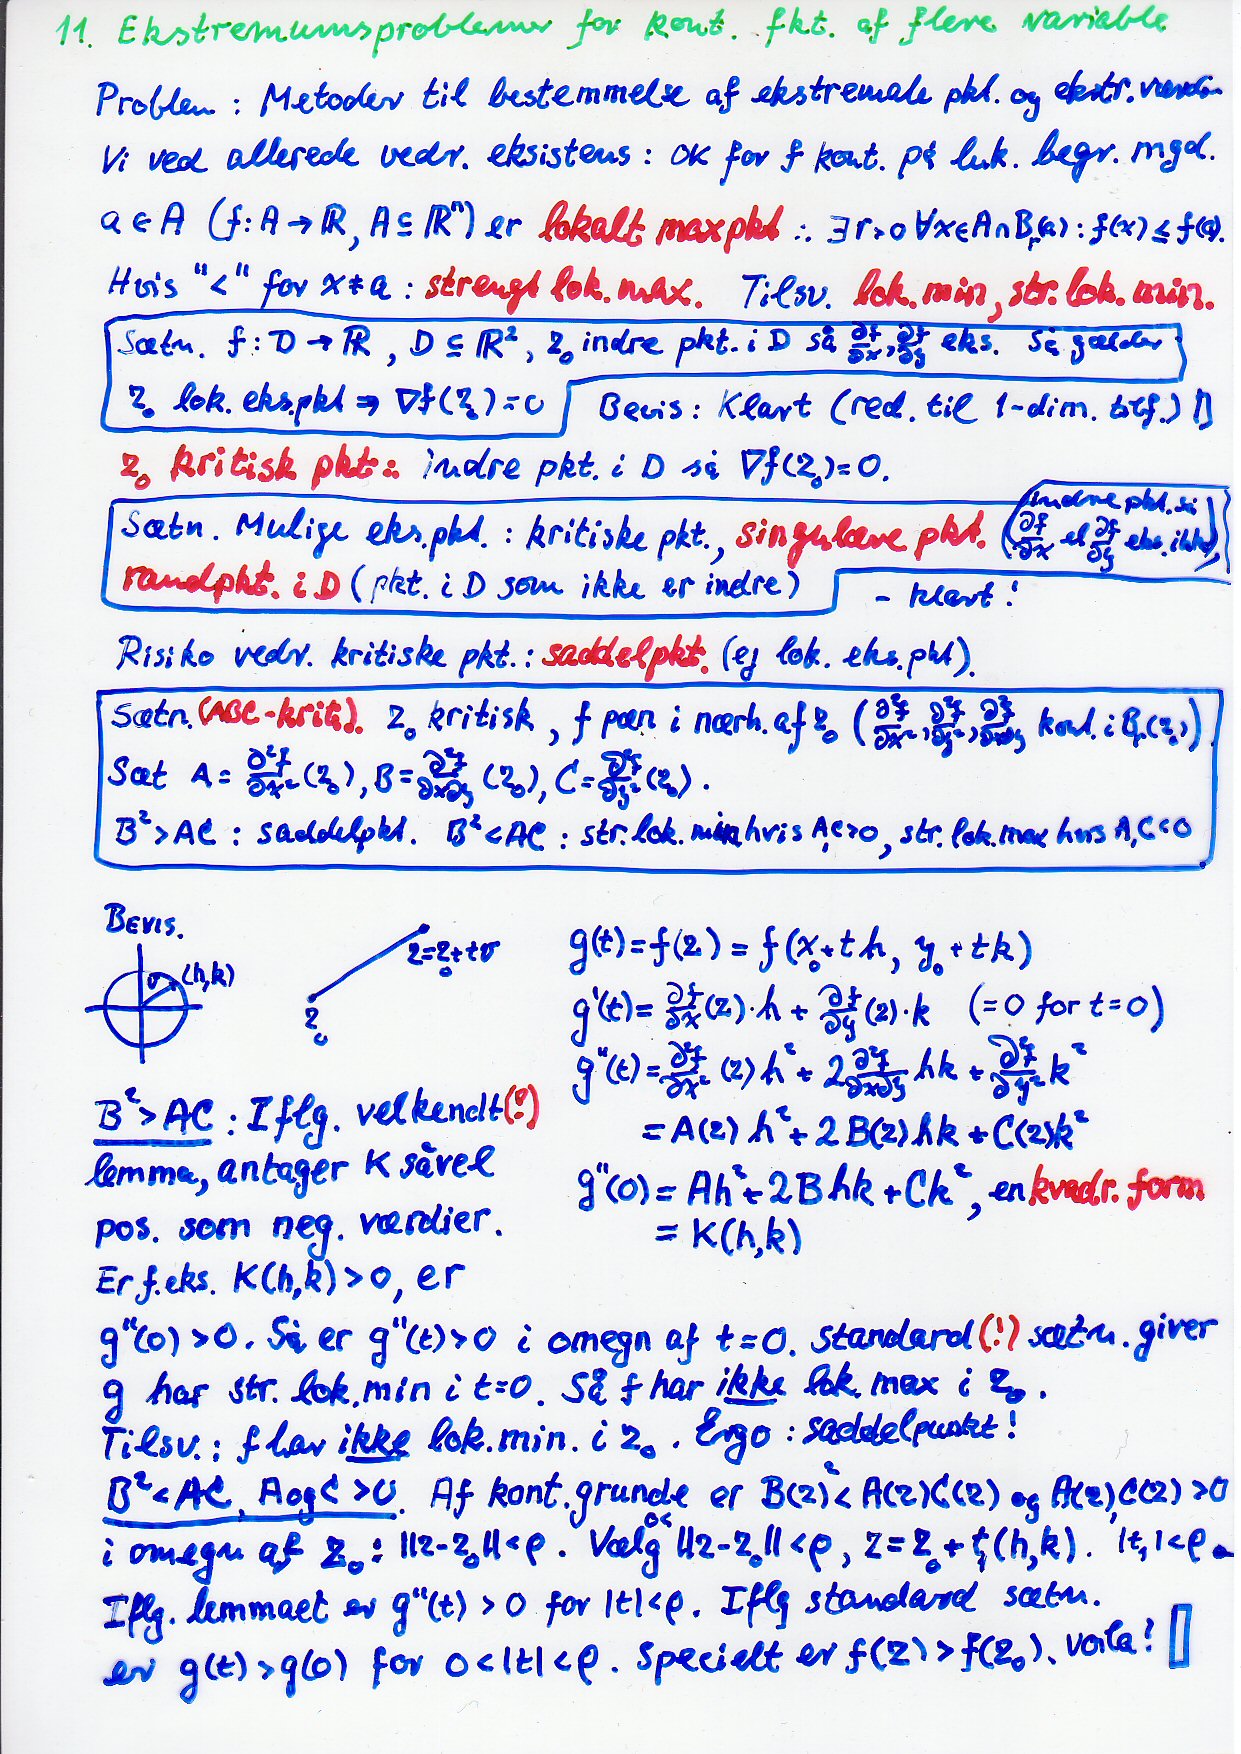 11. Ekstremumsproblemer for kont. fkt. af flere variable
Problem : Metoder til bestemmelse af ekstremale pkt. og ekstr.værdi
Vi ved allerede vedr. eksistens : OK for f kont. på luk. begr. mgd.
a ∈ A (f: A → ℝ, A ⊆ ℝⁿ) er lokalt maxpkt ∴ ∃r>0 ∀x∈A∩B_r(a) : f(x) ≤ f(a).
Hvis "<" for x≠a : strengt lok.max. Tilsv. lok.min, str.lok.min.
Sætn. f: D → ℝ, D ⊆ ℝ², z₀ indre pkt. i D så ∂f/∂x, ∂f/∂y eks. Så gælder
z₀ lok. eks.pkt ⇒ ∇f(z₀)=0 Bevis : Klart (red. til 1-dim. tilf.) ▯
z₀ kritisk pkt ∴ indre pkt. i D så ∇f(z₀)=0.
Sætn. Mulige eks.pkt. : kritiske pkt., singulære pkt. (indre pkt. så ∂f/∂x el ∂f/∂y eks. ikke),
randpkt. i D (pkt. i D som ikke er indre) - klart!
Risiko vedr. kritiske pkt. : saddelpkt. (ej lok. eks.pkt).
Sætn. (ABC-krit.). z₀ kritisk, f pæn i nærh. af z₀ (∂²f/∂x², ∂²f/∂y², ∂²f/∂x∂y kont. i B_r(z₀))
Sæt A = ∂²f/∂x² (z₀), B = ∂²f/∂x∂y (z₀), C = ∂²f/∂y² (z₀).
B² > AC : saddelpkt. B² < AC : str.lok.min hvis A,C>0, str.lok.max hvis A,C<0
Bevis.
v (h,k)
z₀
z=z₀+tv
g(t) = f(z) = f(x₀+th, y₀+tk)
g'(t) = ∂f/∂x (z)·h + ∂f/∂y (z)·k (=0 for t=0)
g''(t) = ∂²f/∂x² (z) h² + 2 ∂²f/∂x∂y hk + ∂²f/∂y² k²
= A(z) h² + 2B(z)hk + C(z)k²
g''(0) = Ah² + 2Bhk + Ck², en kvadr. form
= K(h,k)
B² > AC : Iflg. velkendt (!)
lemma, antager K såvel
pos. som neg. værdier.
Er f.eks. K(h,k) > 0, er
g''(0) > 0. Så er g''(t) > 0 i omegn af t=0. Standard (!) sætn. giver
g har str. lok.min i t=0. Så f har ikke lok. max i z₀.
Tilsv. : f har ikke lok.min. i z₀. Ergo : saddelpunkt!
B² < AC, A og C > 0. Af kont.grunde er B(z)² < A(z)C(z) og A(z),C(z) > 0
i omegn af z₀ : ||z-z₀|| < ρ. Vælg 0<||z-z₀|| < ρ, z = z₀ + t₁(h,k). |t₁| < ρ.
Iflg. lemmaet er g''(t) > 0 for |t| < ρ. Iflg standard sætn.
er g(t) > g(0) for 0 < |t| < ρ. Specielt er f(z) > f(z₀), voila! ▯